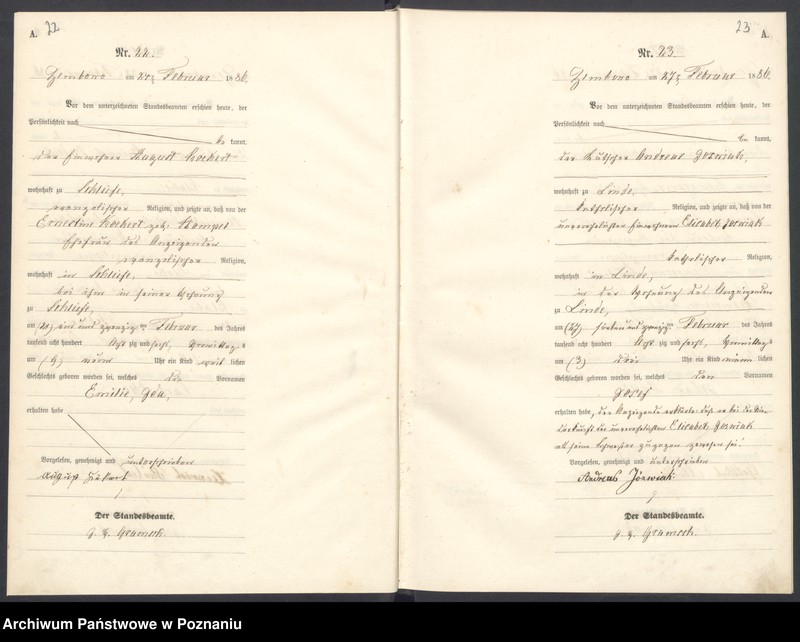 A. 22
Nr. 22.
am Februar 1886.
Vor dem unterzeichneten Standesbeamten erschien heute, der
Persönlichkeit nach
kannt,
der Einwohner August
wohnhaft zu Schliefe,
evangelischer Religion, und zeigte an, daß von der
geb.
Ehefrau des Anzeigenden
evangelischer Religion,
wohnhaft in Schliefe,
bei ihm in seiner Wohnung
zu Schliefe,
am (21) ein und zwanzig ten Februar des Jahres
tausend acht hundert acht zig und sechs, Vormittags
um (9) neun Uhr ein Kind weib lichen
Geschlechts geboren worden sei, welches die Vornamen
Emilie, Ida,
erhalten habe
Vorgelesen, genehmigt und unterschrieben
August
Der Standesbeamte.
23 A.
Nr. 23.
am 27 Februar 1886.
Vor dem unterzeichneten Standesbeamten erschien heute, der
Persönlichkeit nach
be kannt,
der Andreas
wohnhaft zu Linde,
katholischer Religion, und zeigte an, daß von der
unverehelichten Einwohnerin Elisabeth
katholischer Religion,
wohnhaft in Linde,
in der Wohnung des Anzeigenden
zu Linde,
am (27) sieben und zwanzig ten Februar des Jahres
tausend acht hundert acht zig und sechs, Vormittags
um (3) drei Uhr ein Kind männ lichen
Geschlechts geboren worden sei, welches den Vornamen
Josef
erhalten habe, der Anzeigende erklärte, daß er bei der Nie-
derkunft der unverehelichten Elisabeth
als seine Schwester zugegen gewesen sei.
Vorgelesen, genehmigt und unterschrieben
Andreas Józwiak.
Der Standesbeamte.
Archiwum Państwowe w Poznaniu